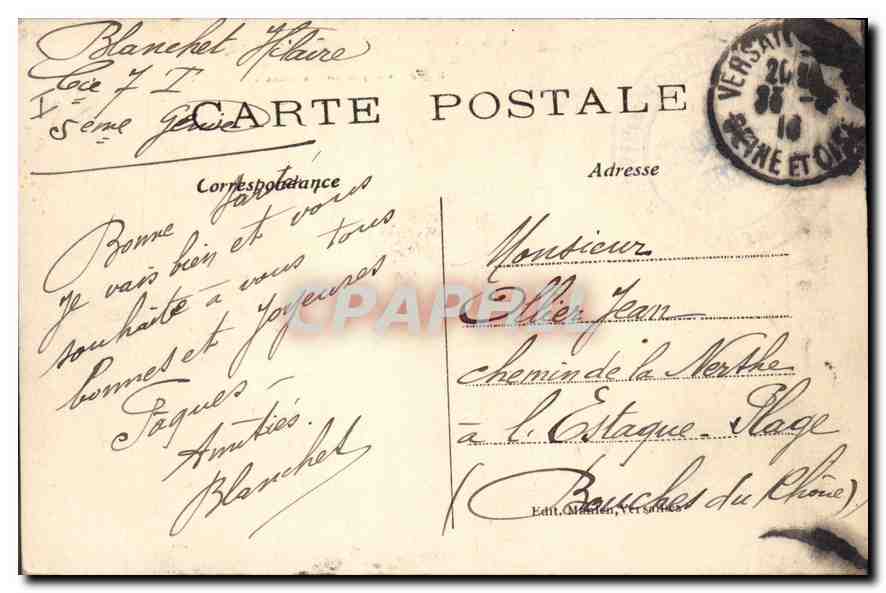 Blanchet Hilaire
Cie 7 I
5eme Génie
CARTE POSTALE
Correspondance
Adresse
VERSAILLES
SEINE ET OISE
Bonne Santé
Je vais bien et vous
souhaite à vous tous
bonnes et Joyeuses
Pâques -
Amitiés.
Blanchet
Monsieur
Ollier Jean
chemin de la Nerthe
à l'Estaque-Plage
(Bouches du Rhône)
Edit. Mullen, Versailles
CPARAMA